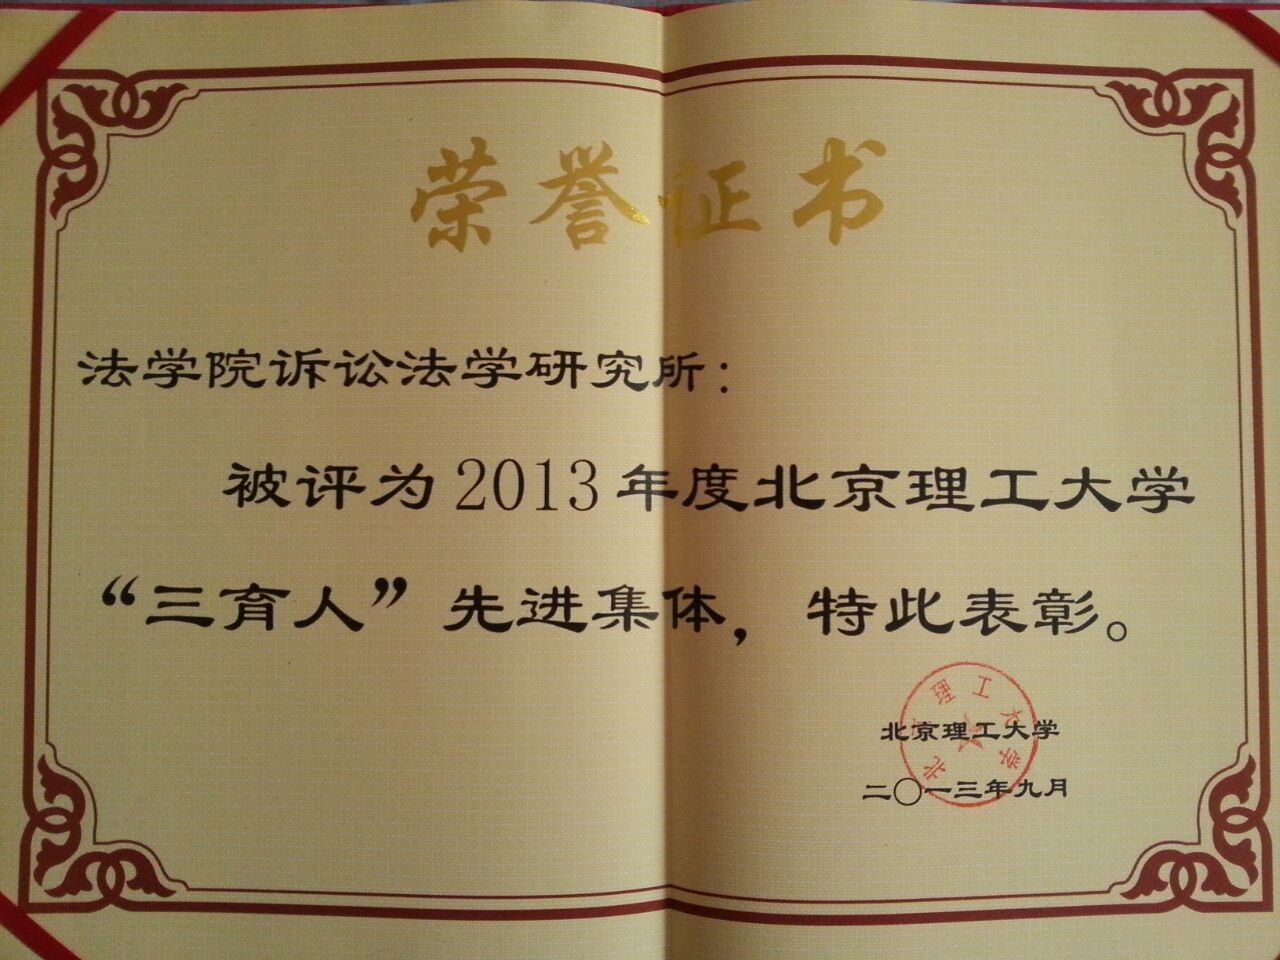 荣誉证书
法学院诉讼法学研究所：
被评为2013年度北京理工大学
“三育人”先进集体，特此表彰。
北京理工大学
北京理工大学
二〇一三年九月